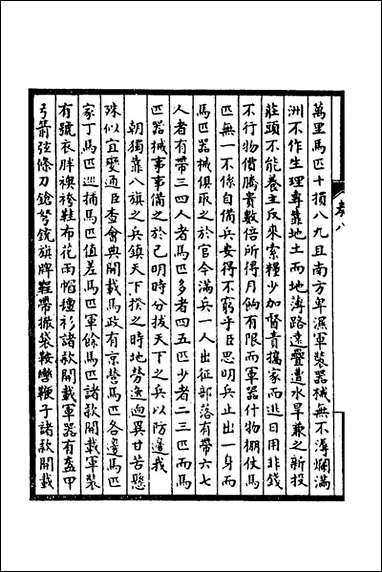 萬里馬匹十損八九且南方卑濕軍裝器械無不濕爛滿
洲不作生理專靠地土而地薄路遠疊遭水旱兼之新投
莊頭不能養主反來索糧少加督責攜家而逃日用非錢
不行物價騰貴數倍所得月餉有限而軍器什物棚仗馬
匹無一不係自備兵安得不窮乎臣思明兵止出一身而
馬匹器械俱取之於官今滿兵一人出征部落有帶六七
人者有帶三四人者馬匹多者四五匹少者二三匹而馬
匹器械事事備之於己明時分拔天下之兵以防邊我
朝獨靠八旗之兵鎮天下揆之時地勞逸迥異甘苦懸
殊似宜變通臣查會典開載馬政有京營馬匹各邊馬匹
家丁馬匹巡捕馬匹值差馬匹軍餘馬匹諸款開載軍裝
有號衣胖襖袴鞋布花雨帽種衫諸款開載軍器有盔甲
弓箭弦條刀鎗弩銃旗牌鞓帶撒袋鞍轡鞭子諸款開載
卷八